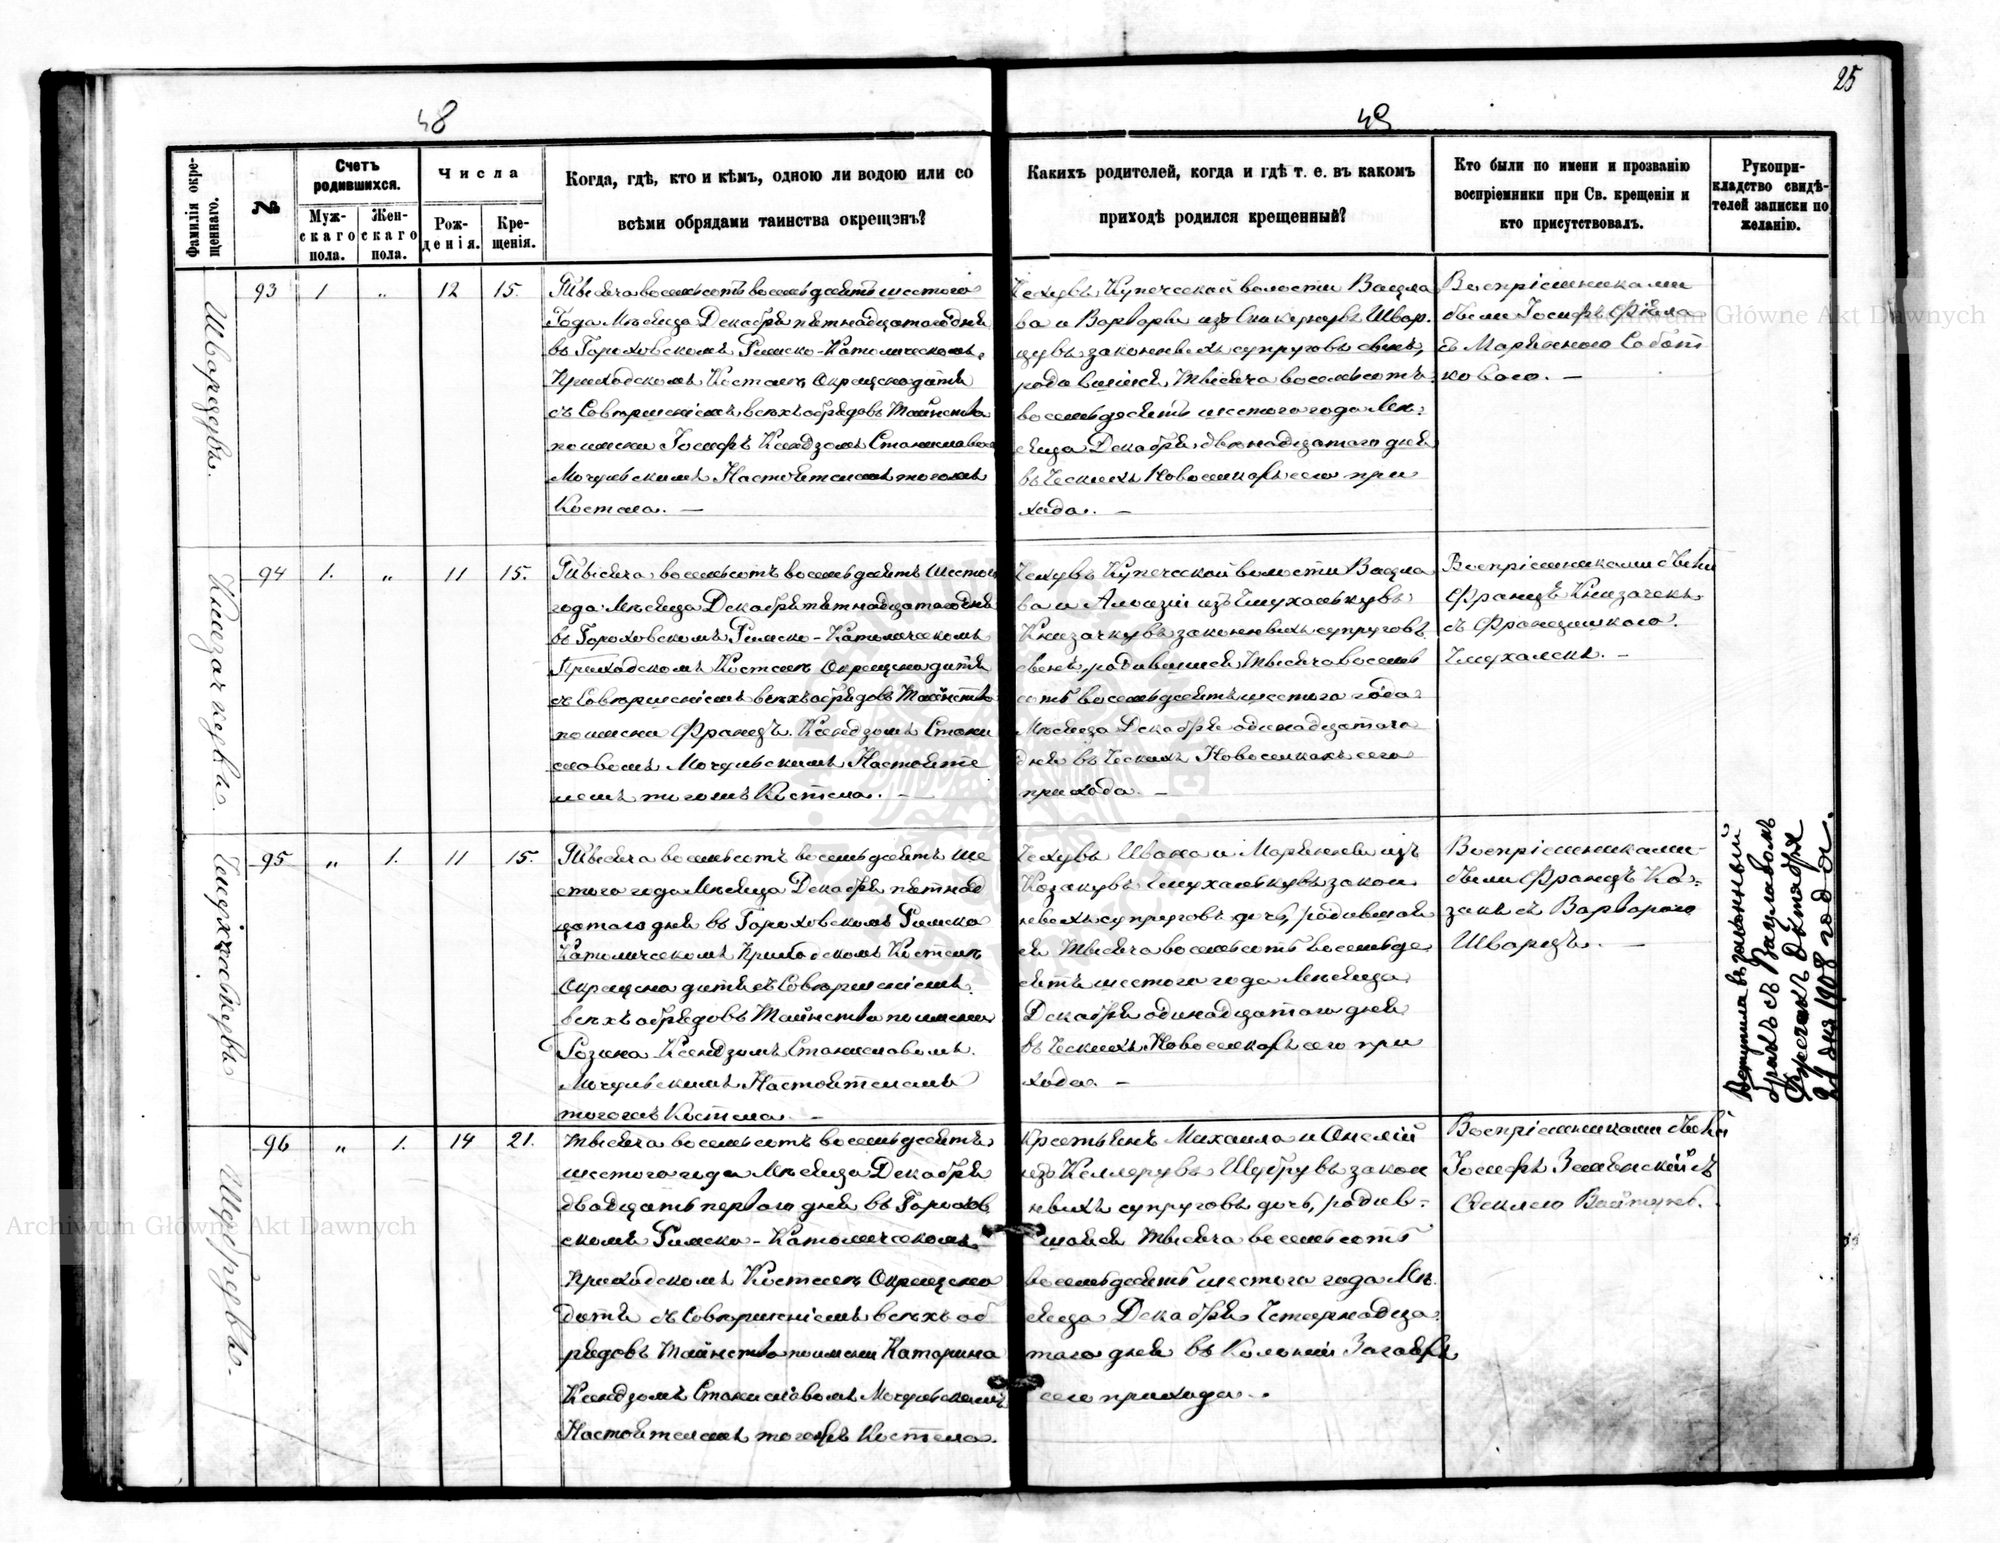 25
48
49
Фамилія окре-
щеннаго.
№
Счетъ
родившихся.
Муж-
скаго
пола.
Жен-
скаго
пола.
Числа
Рож-
денія.
Кре-
щенія.
Когда, гдѣ, кто и кѣмъ, одною ли водою или со
всѣми обрядами таинства окрещэнъ?
Какихъ родителей, когда и гдѣ т. е. въ какомъ
приходѣ родился крещенный?
Кто были по имени и прозванію
воспріемники при Св. крещеніи и
кто присутствовалъ.
Рукопри-
кладство свидѣ-
телей записки по
желанію.
Шварцувъ.
93 1 „ 12 15.
Тысяча восемьсотъ восемьдесятъ шестого
Года Мѣсяца Декабря пятнадцатого дня
въ Гороховскомъ Римско-Католическомъ
Приходскомъ Костелѣ Окрещено дитя
съ Совершеніемъ всѣхъ обрядовъ Таинства
по имени Іосифъ Ксендзомъ Станиславомъ
Мочульскимъ Настоятелемъ тогожъ
Костела. —
Чехувъ Купеческой волости Вацла
ва и Варвары изъ Шварц
цувъ законныхъ супруговъ сынъ,
родившійся Тысяча восемьсотъ
восемьдесятъ шестого года Мѣ-
сяца Декабря двѣнадцатого дня
въ Ческихъ Новоселкахъ сего при
хода. —
Воспріемниками
были Іосифъ Фіала
съ Маріянною Собот
ковою. —
94 1. „ 11 15.
Тысяча восемьсотъ восемьдесятъ Шестого
года Мѣсяца Декабря пятнадцатого дня
въ Гороховскомъ Римско-Католическомъ
Приходскомъ Костелѣ Окрещено дитя
съ Совершеніемъ всѣхъ обрядовъ Таинства
по имени Францъ Ксендзомъ Стани
славомъ Мочульскимъ Настояте
лемъ тогожъ Костела. —
Чехувъ Купеческой волости Вацла
ва и Алоизіи изъ Чмухалькувъ
Книзачкувъ законныхъ супруговъ
сынъ, родившійся Тысяча восемь
сотъ восемьдесятъ шестого года
Мѣсяца Декабря одинадцатого
дня въ Ческихъ Новоселкахъ сего
прихода. —
Воспріемниками были
Францъ Книзачекъ
съ Францишкою
Чмухалекъ. —
Чмухалькувъ
95 „ 1. 11 15.
Тысяча восемьсотъ восемьдесятъ ше
стого года Мѣсяца Декабря пятнад
цатого дня въ Гороховскомъ Римско
Католическомъ Приходскомъ Костелѣ
Окрещено дитя съ Совершеніемъ
всѣхъ обрядовъ Таинства по имени
Розина Ксендзомъ Станиславомъ
Мочульскимъ Настоятелемъ
тогожъ Костела. —
Чехувъ Ивана и Маріянны изъ
Козакувъ Чмухалькувъ закон
ныхъ супруговъ дочь, родившая
ся Тысяча восемьсотъ восемьде-
сятъ шестого года Мѣсяца
Декабря одинадцатого дня
въ Ческихъ Новоселкахъ сего при
хода. —
Воспріемниками
были Францъ Ко-
закъ съ Варварою
Шварцъ. —
Вступила въ законный
бракъ съ Вацлавомъ
Октября
21 дня 1908 года.
96 „ 1. 14 21.
Тысяча восемьсотъ восемьдесятъ
шестого года Мѣсяца Декабря
двадцать первого дня въ Горохов
скомъ Римско-Католическомъ
Приходскомъ Костелѣ Окрещено
дитя съ Совершеніемъ всѣхъ об
рядовъ Таинства по имени Катарина
Ксендзомъ Станиславомъ Мочульскимъ
Настоятелемъ тогожъ Костела.
Крестьянъ Михаила и Анелии
изъ Келлерувъ закон
ныхъ супруговъ дочь, родив-
шаяся Тысяча восемьсотъ
восемьдесятъ шестого года Мѣ
сяца Декабря Четырнадца-
того дня въ Колоніи
сего прихода.
Воспріемниками были
Іосифъ съ
Archiwum Główne Akt Dawnych
Archiwum Główne Akt Dawnych